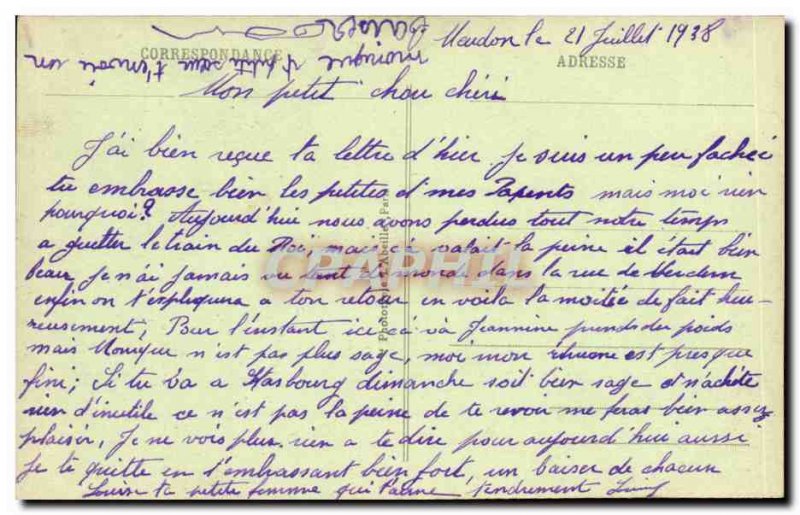 Meudon le 21 Juillet 1938
CORRESPONDANCE
ADRESSE
monique et petite sœur t'envoie un
baiser
Mon petit chou chéri
J'ai bien reçue ta lettre d'hier, je suis un peu fachée
tu embrasse bien les petites et mes Parents mais moi rien
pourquoi? Aujourd'hui nous avons perdus tout notre temps
a guetter le train du Roi, mais ça valait la peine il était bien
beau, je n'ai jamais vu tant de monde dans la rue de Verdun
enfin on t'expliquera a ton retour en voila la moitée de fait heu-
reusement, Pour l'instant ici ça va Jeannine prends du poids
mais Monique n'est pas plus sage, moi mon rhume est presque
fini; Si tu va a Strasbourg dimanche soit bien sage et n'achète
rien d'inutile ce n'est pas la peine de te revoir me feras bien assez
plaisir, Je ne vois plus rien a te dire pour aujourd'hui aussi
je te quitte en t'embrassant bien fort, un baiser de chacun
Louise ta petite femme qui t'aime tendrement
Photographie L'Abeille, Paris
CPAPHIL